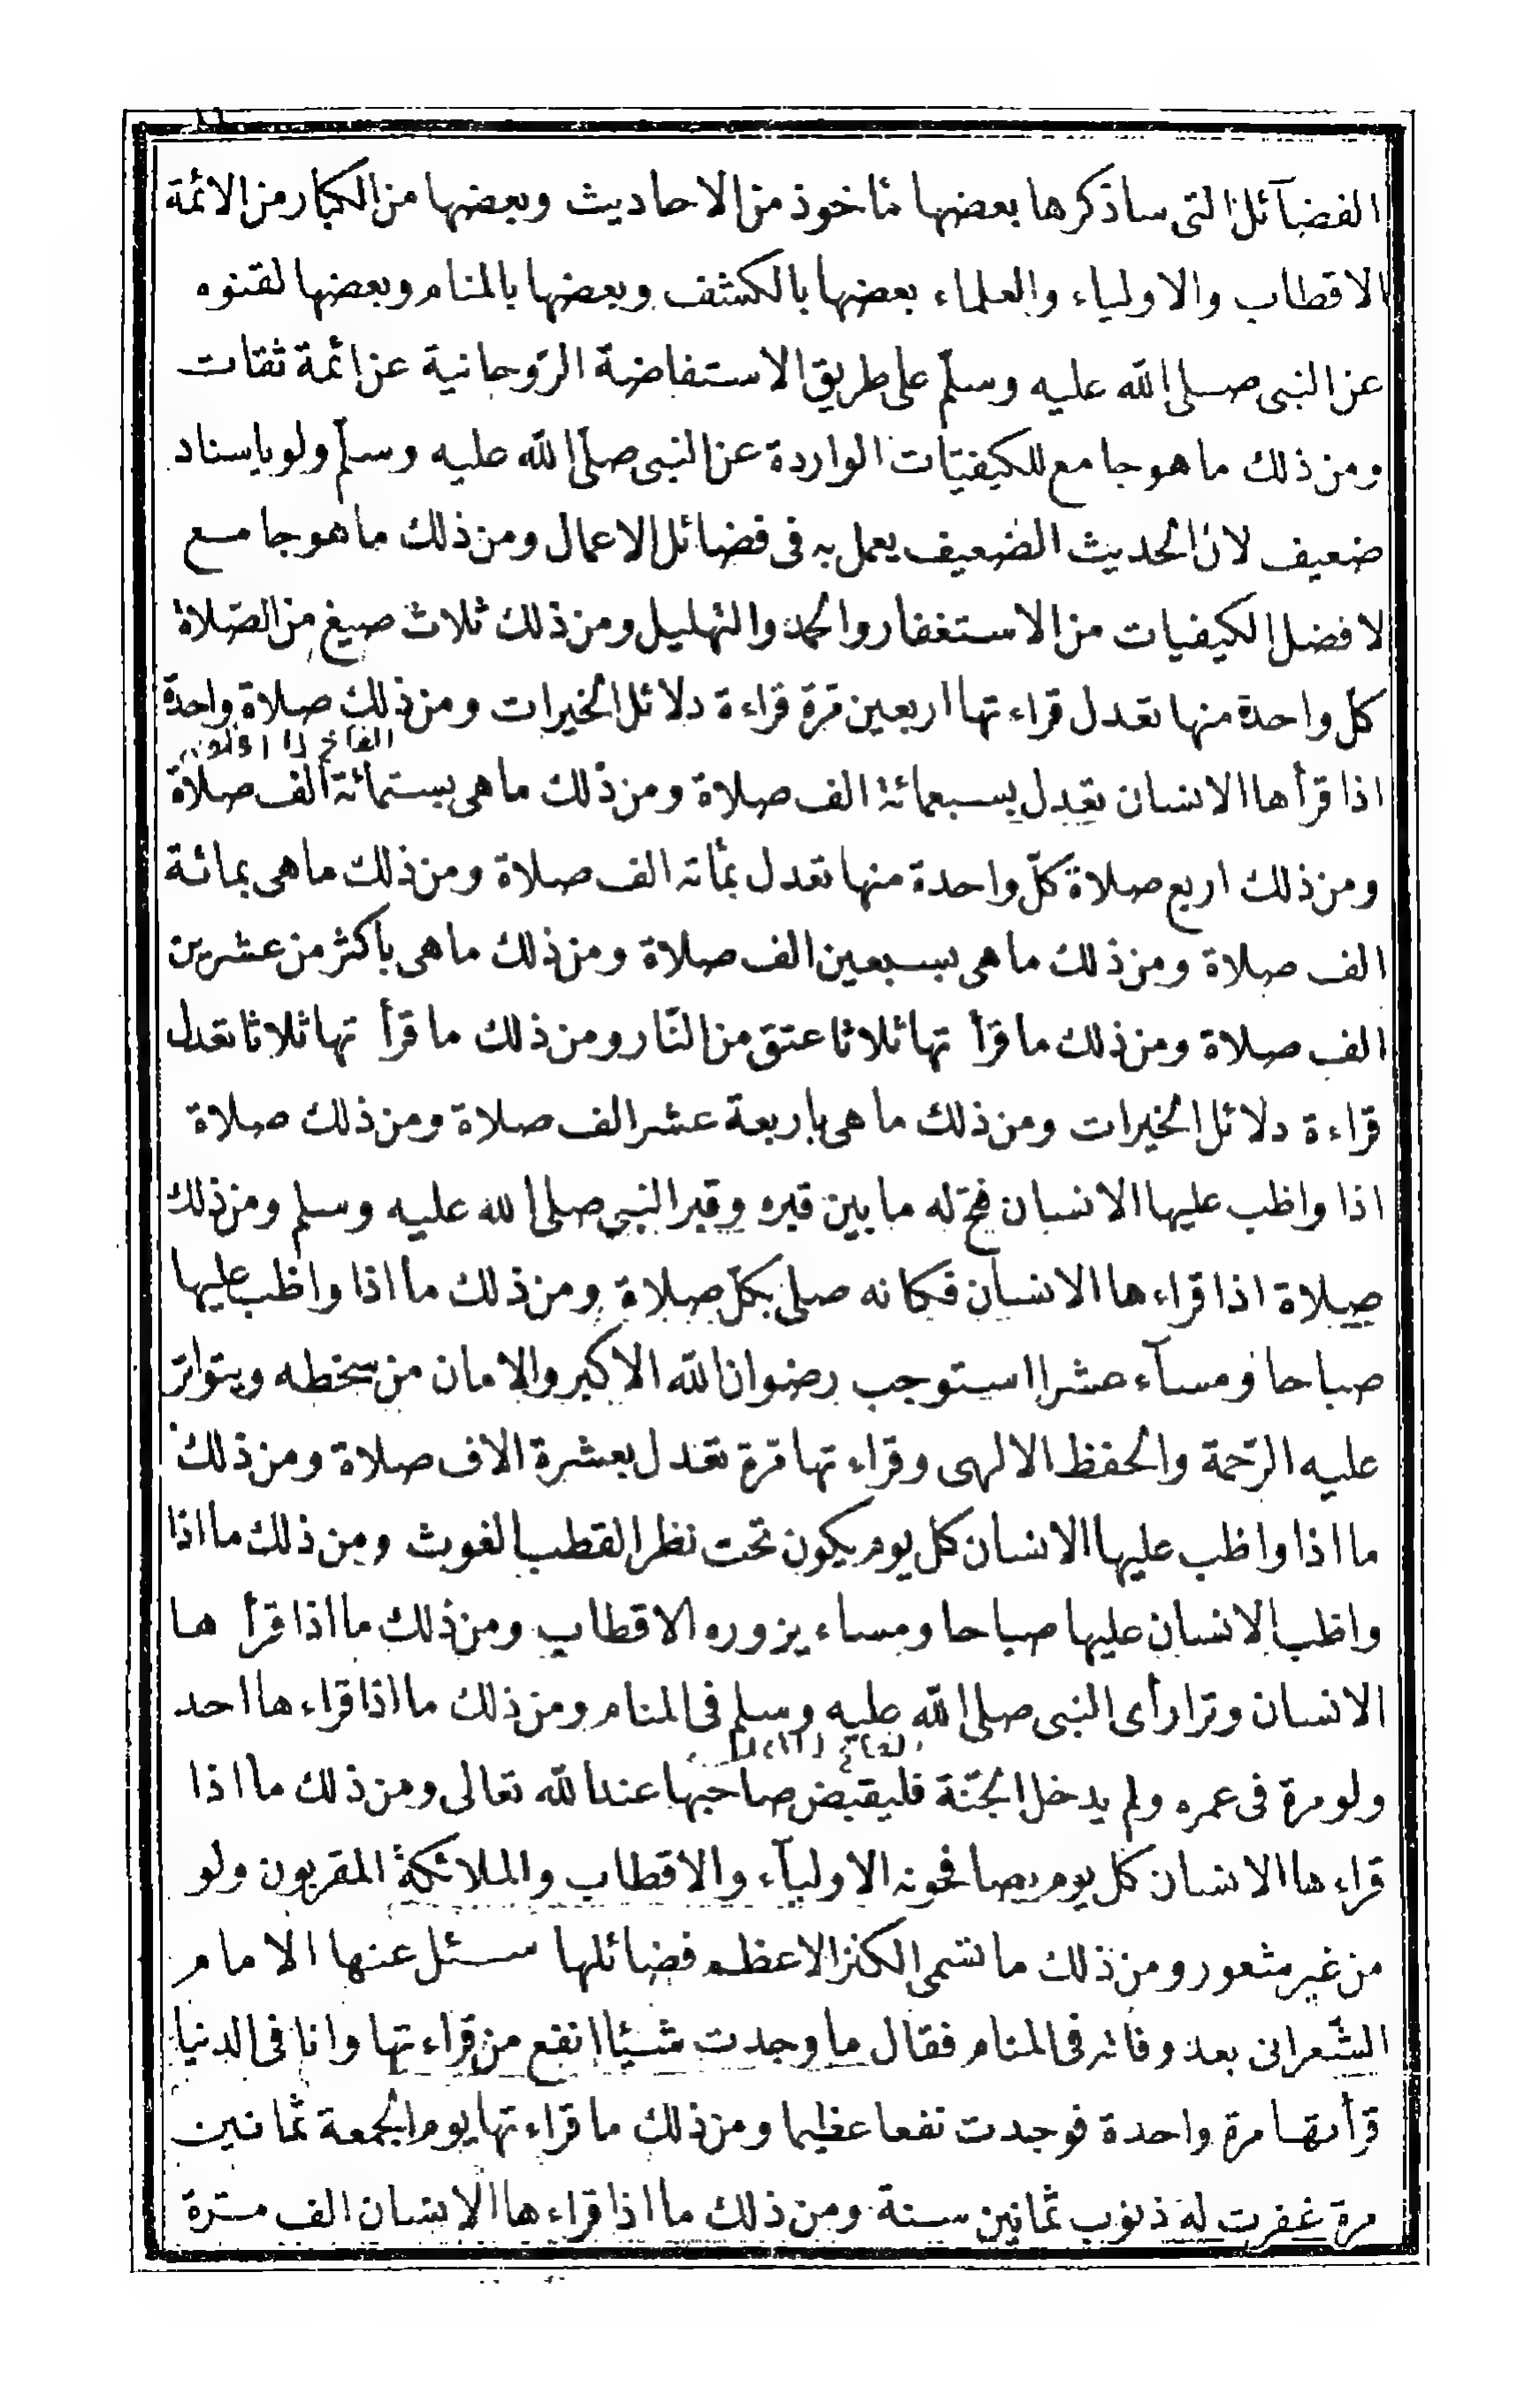 الفضآئل التى ساذكرها بعضها مأخوذ من الاحاديث وبعضها من الكبار من الائمة
الاقطاب والاولياء والعلماء بعضها بالكشف وبعضها بالمنام وبعضها لقنوه
عن النبى صلى الله عليه وسلّم على طريق الاستفاضة الرّوحانية عن ائمة ثقات
ومن ذلك ما هو جامع للكيفيّات الواردة عن النبى صلّى الله عليه وسلّم ولو باسناد
ضعيف لانّ الحديث الضعيف يعمل به فى فضائل الاعمال ومن ذلك ما هو جامع
لافضل الكيفيات من الاستغفار والحمد والتهليل ومن ذلك ثلاث صيغ من الصّلاة
كلّ واحدة منها تعدل قراءتها اربعين مرّة قراءة دلائل الخيرات ومن ذلك صلاة واحدة
اذا قرأها الانسان تعدل بسبعمائة الف صلاة ومن ذلك ما هى بستمائة الف صلاة
ومن ذلك اربع صلاة كلّ واحدة منها تعدل بمأته الف صلاة ومن ذلك ما هى بمائة
الف صلاة ومن ذلك ما هى بسبعين الف صلاة ومن ذلك ما هى باكثر من عشرين
الف صلاة ومن ذلك ما قرأ تها ثلاثا عتق من النّار ومن ذلك ما قرأ تها ثلاثا تعدل
قراءة دلائل الخيرات ومن ذلك ما هى باربعة عشر الف صلاة ومن ذلك صلاة
اذا واظب عليها الانسان فتح له ما بين قبره وقبر النبى صلى الله عليه وسلم ومن ذلك
صلاة اذا قراءها الانسان فكانه صلى بكلّ صلاة ومن ذلك ما اذا واظب عليها
صباحا ومسآء عشرا استوجب رضوان الله الاكبر والامان من سخطه ويتواتر
عليه الرّحمة والحفظ الالهى وقراءتها مرّة تعدل بعشرة الاف صلاة ومن ذلك
ما اذا واظب عليها الانسان كل يوم يكون تحت نظر القطب الغوث ومن ذلك ما اذا
واظب الانسان عليها صباحا ومساء يزوره الاقطاب ومن ذلك ما اذا قرأ ها
الانسان وترا رأى النبى صلى الله عليه وسلم فى المنام ومن ذلك ما اذا قراءها احد
ولو مرة فى عمره ولم يدخل الجنّة فليقبض صاحبها عند الله تعالى ومن ذلك ما اذا
قراءها الانسان كل يوم يصافحونه الاوليآء والاقطاب والملائكة المقربون ولو
من غير شعور ومن ذلك ما تسمى الكنز الاعظم فضائلها سئل عنها الامام
الشّعرانى بعد وفاته فى المنام فقال ما وجدت شيئا انفع من قراءتها وانا فى الدنيا
قرأتها مرة واحدة فوجدت نفعا عظيما ومن ذلك ما قراءتها يوم الجمعة ثمانين
مرة غفرت له ذنوب ثمانين سنة ومن ذلك ما اذا قراءها الانسان الف مرّة